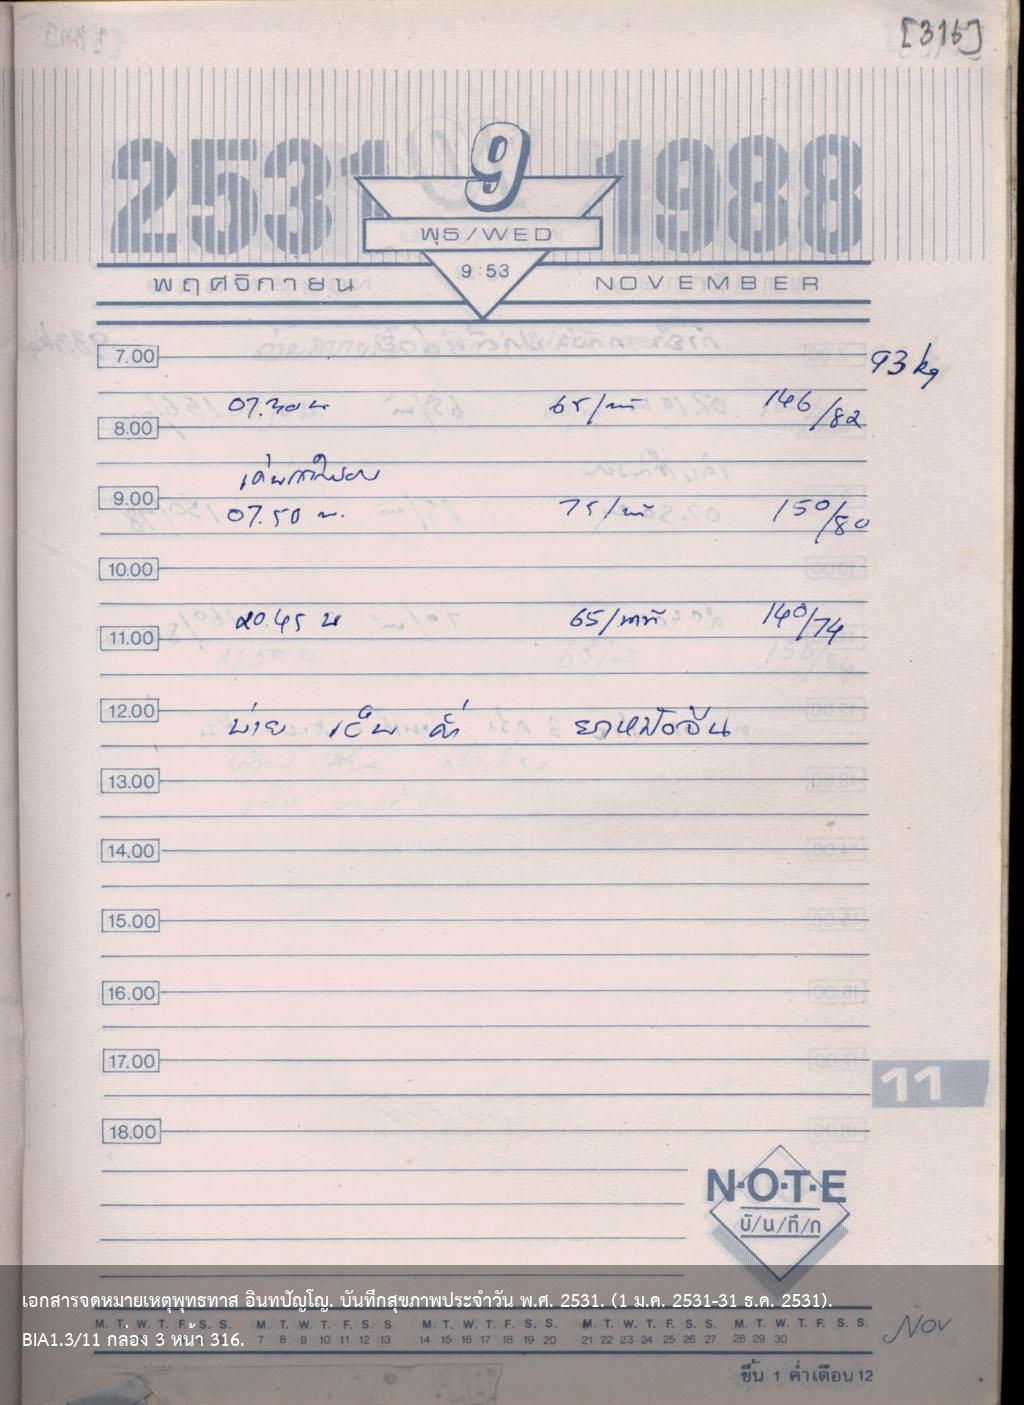 [316]
2531 9 1988
พุธ/WED
พฤศจิกายน 9:53 NOVEMBER
7.00 93 kg
07.30 น 65/นาที 146/82
8.00
9.00
07.50 น. 75/นาที 150/80
10.00
20.45 น 65/นาที 140/74
11.00
12.00
บ่าย เย็น ค่ำ ยาหม้อจีน
13.00
14.00
15.00
16.00
17.00
11
18.00
N·O·T·E
บั/น/ทึ/ก
เอกสารจดหมายเหตุพุทธทาส อินทปัญโญ. บันทึกสุขภาพประจำวัน พ.ศ. 2531. (1 ม.ค. 2531-31 ธ.ค. 2531).
M. T. W. T. F. S. S. M. T. W. T. F. S. S. M. T. W. T. F. S. S. M. T. W. T. F. S. S. M. T. W. T. F. S. S. Nov
BIA1.3/11 กล่อง 3 หน้า 316. 7 8 9 10 11 12 13 14 15 16 17 18 19 20 21 22 23 24 25 26 27 28 29 30
ขึ้น 1 ค่ำ เดือน 12